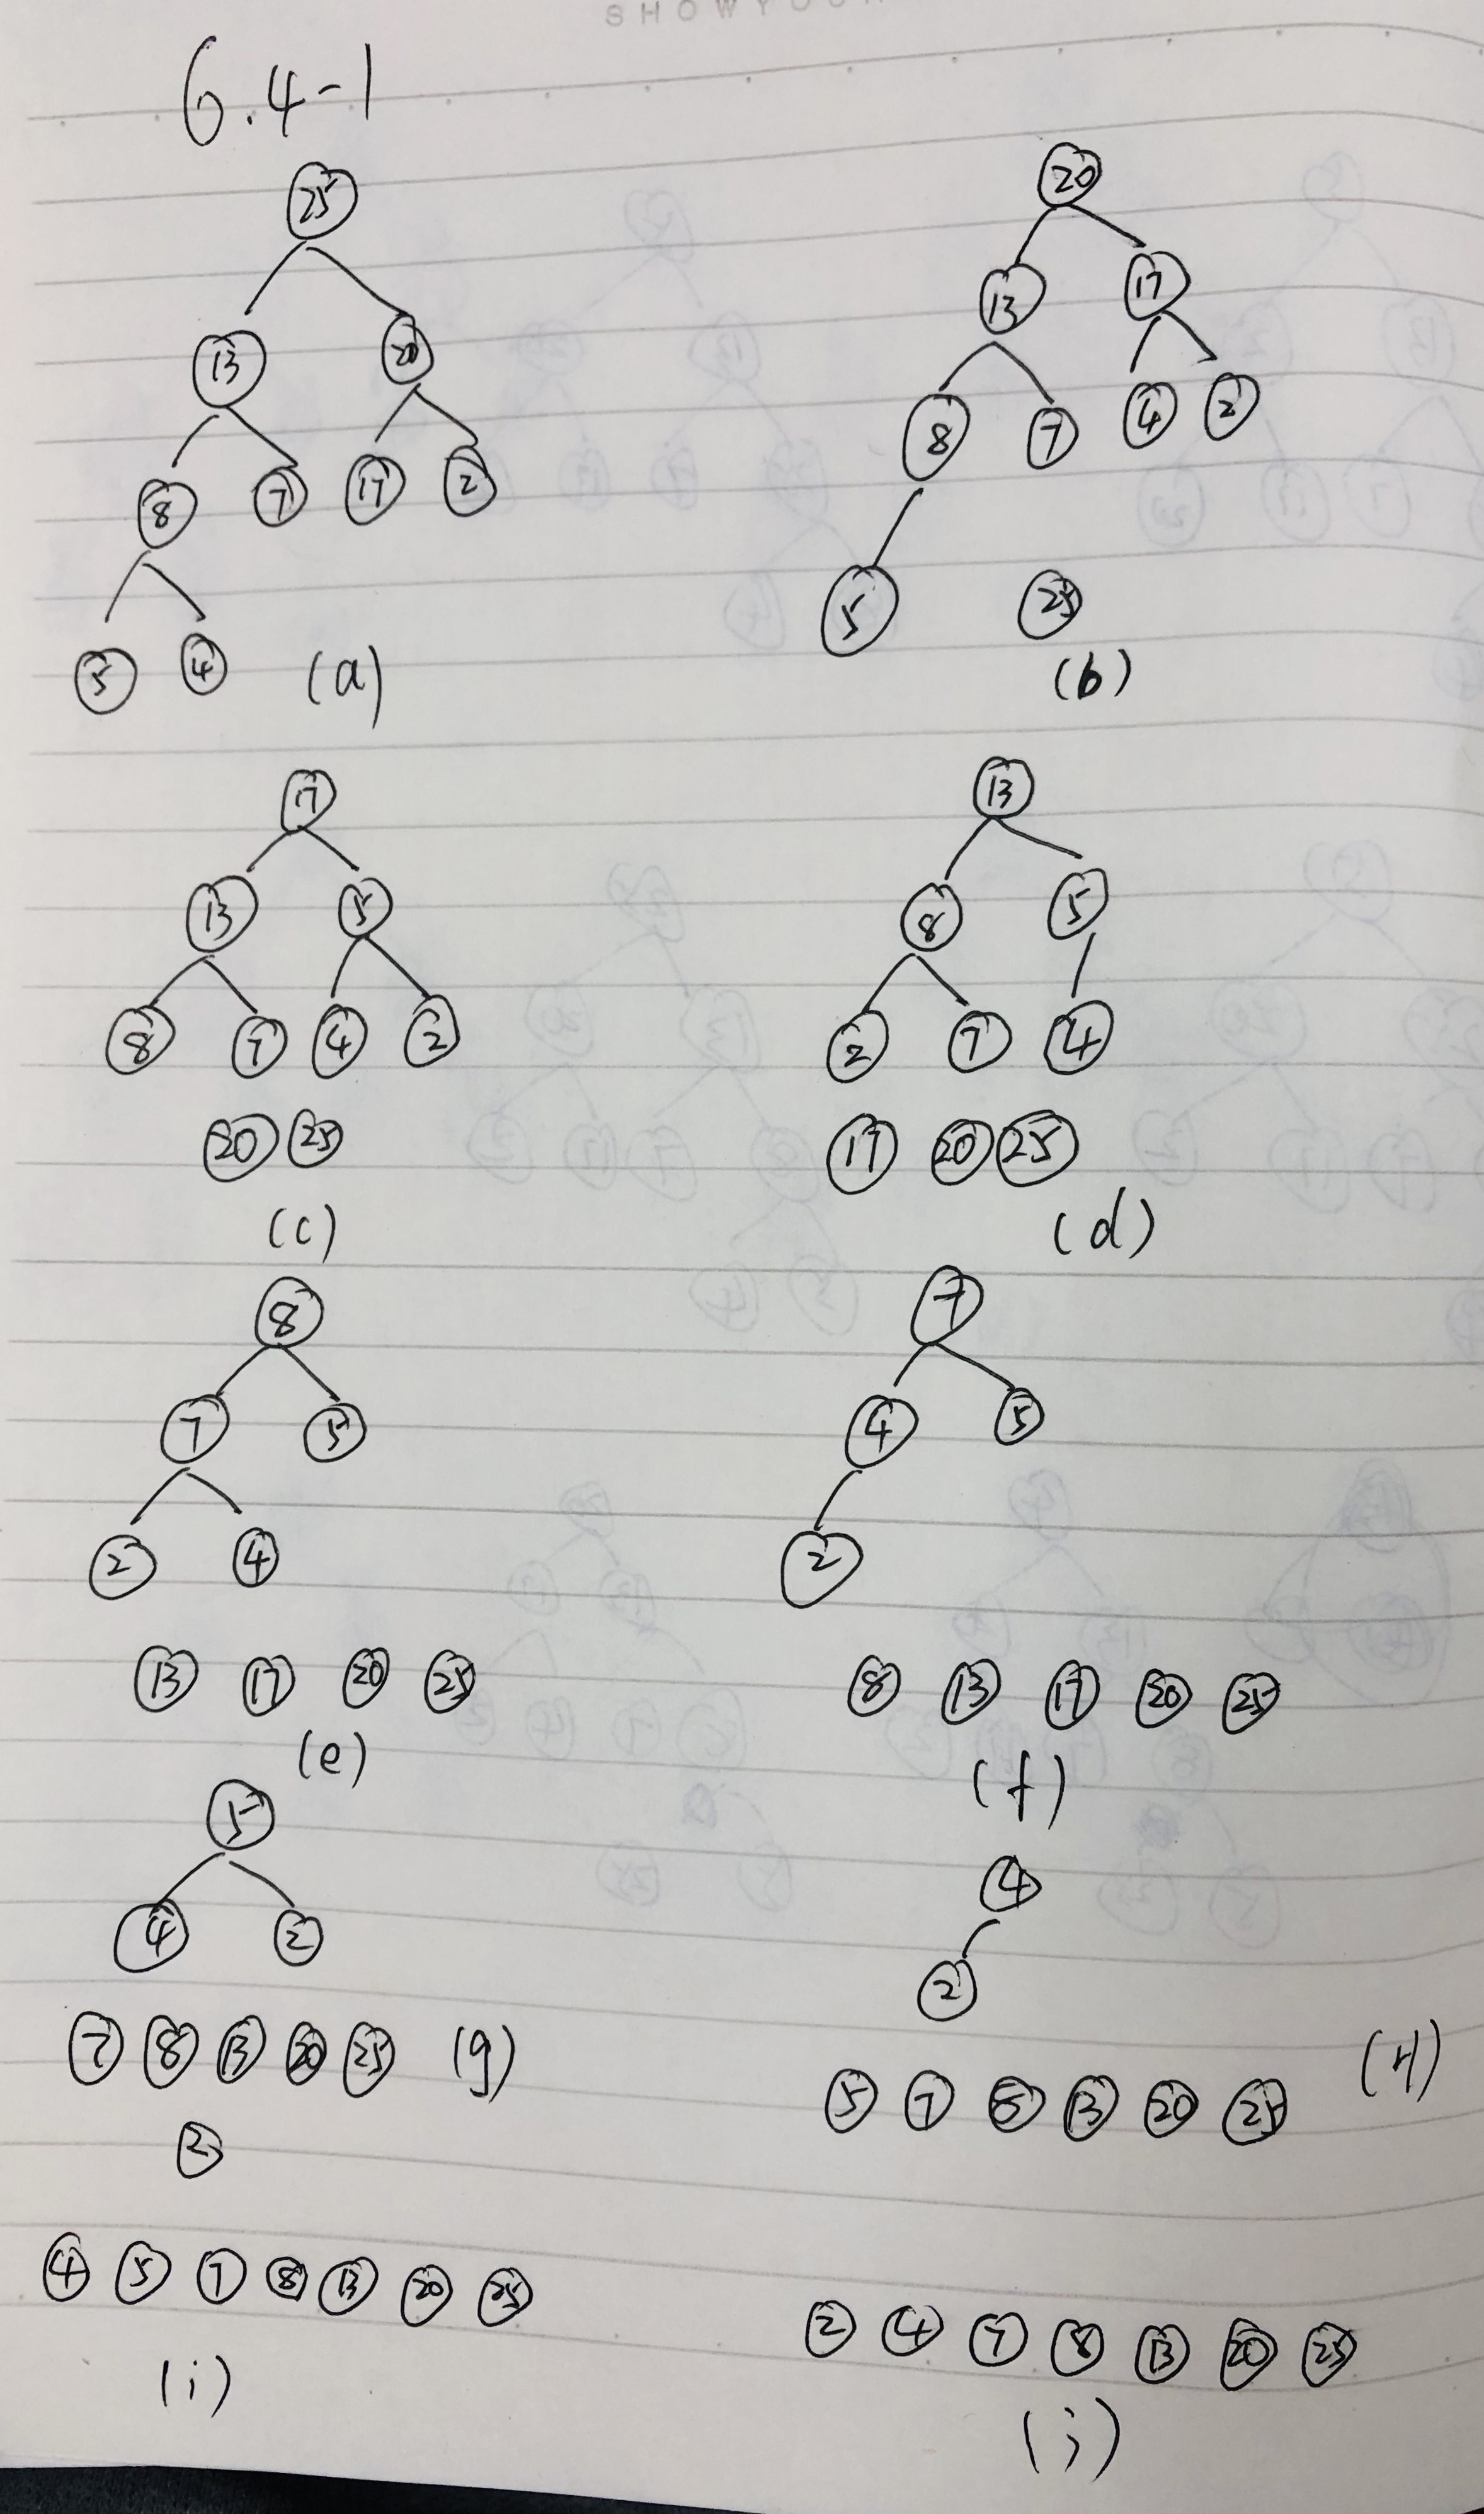 6.4-1
25
13 20
8 7 17 2
5 4 (a)
20
13 17
8 7 4 2
5 25
(b)
17
13 5
8 7 4 2
20 25
(c)
13
8 5
2 7 4
17 20 25
(d)
8
7 5
2 4
13 17 20 25
(e)
7
4 5
2
8 13 17 20 25
(f)
5
4 2
7 8 13 20 25 (g)
4
2
5 7 8 13 20 25 (H)
2
4 5 7 8 13 20 25
(i)
2 4 7 8 13 20 25
(j)